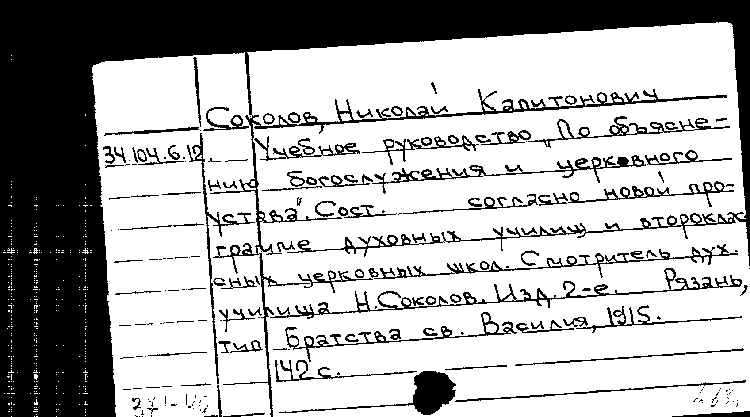 Соколов, Николай Капитонович
34.104.6.12. Учебное руководство „По объясне-
нию богослужения и церковного
устава". Сост. согласно новой про-
грамме духовных училищ и второклас
сных церковных школ. Смотритель дух.
училища Н.Соколов. Изд. 2-е. Рязань,
тип Братства св. Василия, 1915.
142 с.